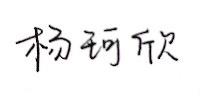 杨珂欣